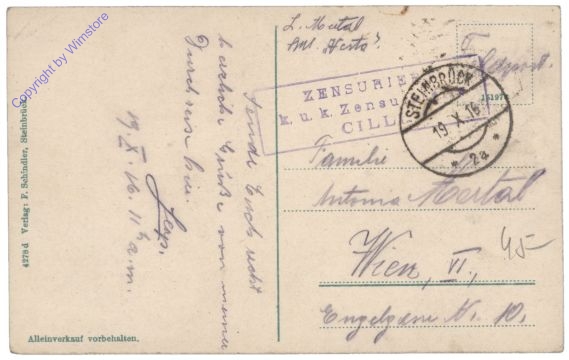 Copyright by Wimstore
L. Mertal
Feldpost.
ZENSURIERT
k. u. k. Zensur
CILLI
STEINBRÜCK
19.X.16
* 2a *
151978
Familie
Antonie Mertal
Wien, VI.,
Engelgasse Nr. 10.
45-
Sende Euch recht
herzliche Grüße von meiner
Durchreise hier.
19. X. 16. 11h a.m.
4278d Verlag: F. Schindler, Steinbrück.
Alleinverkauf vorbehalten.